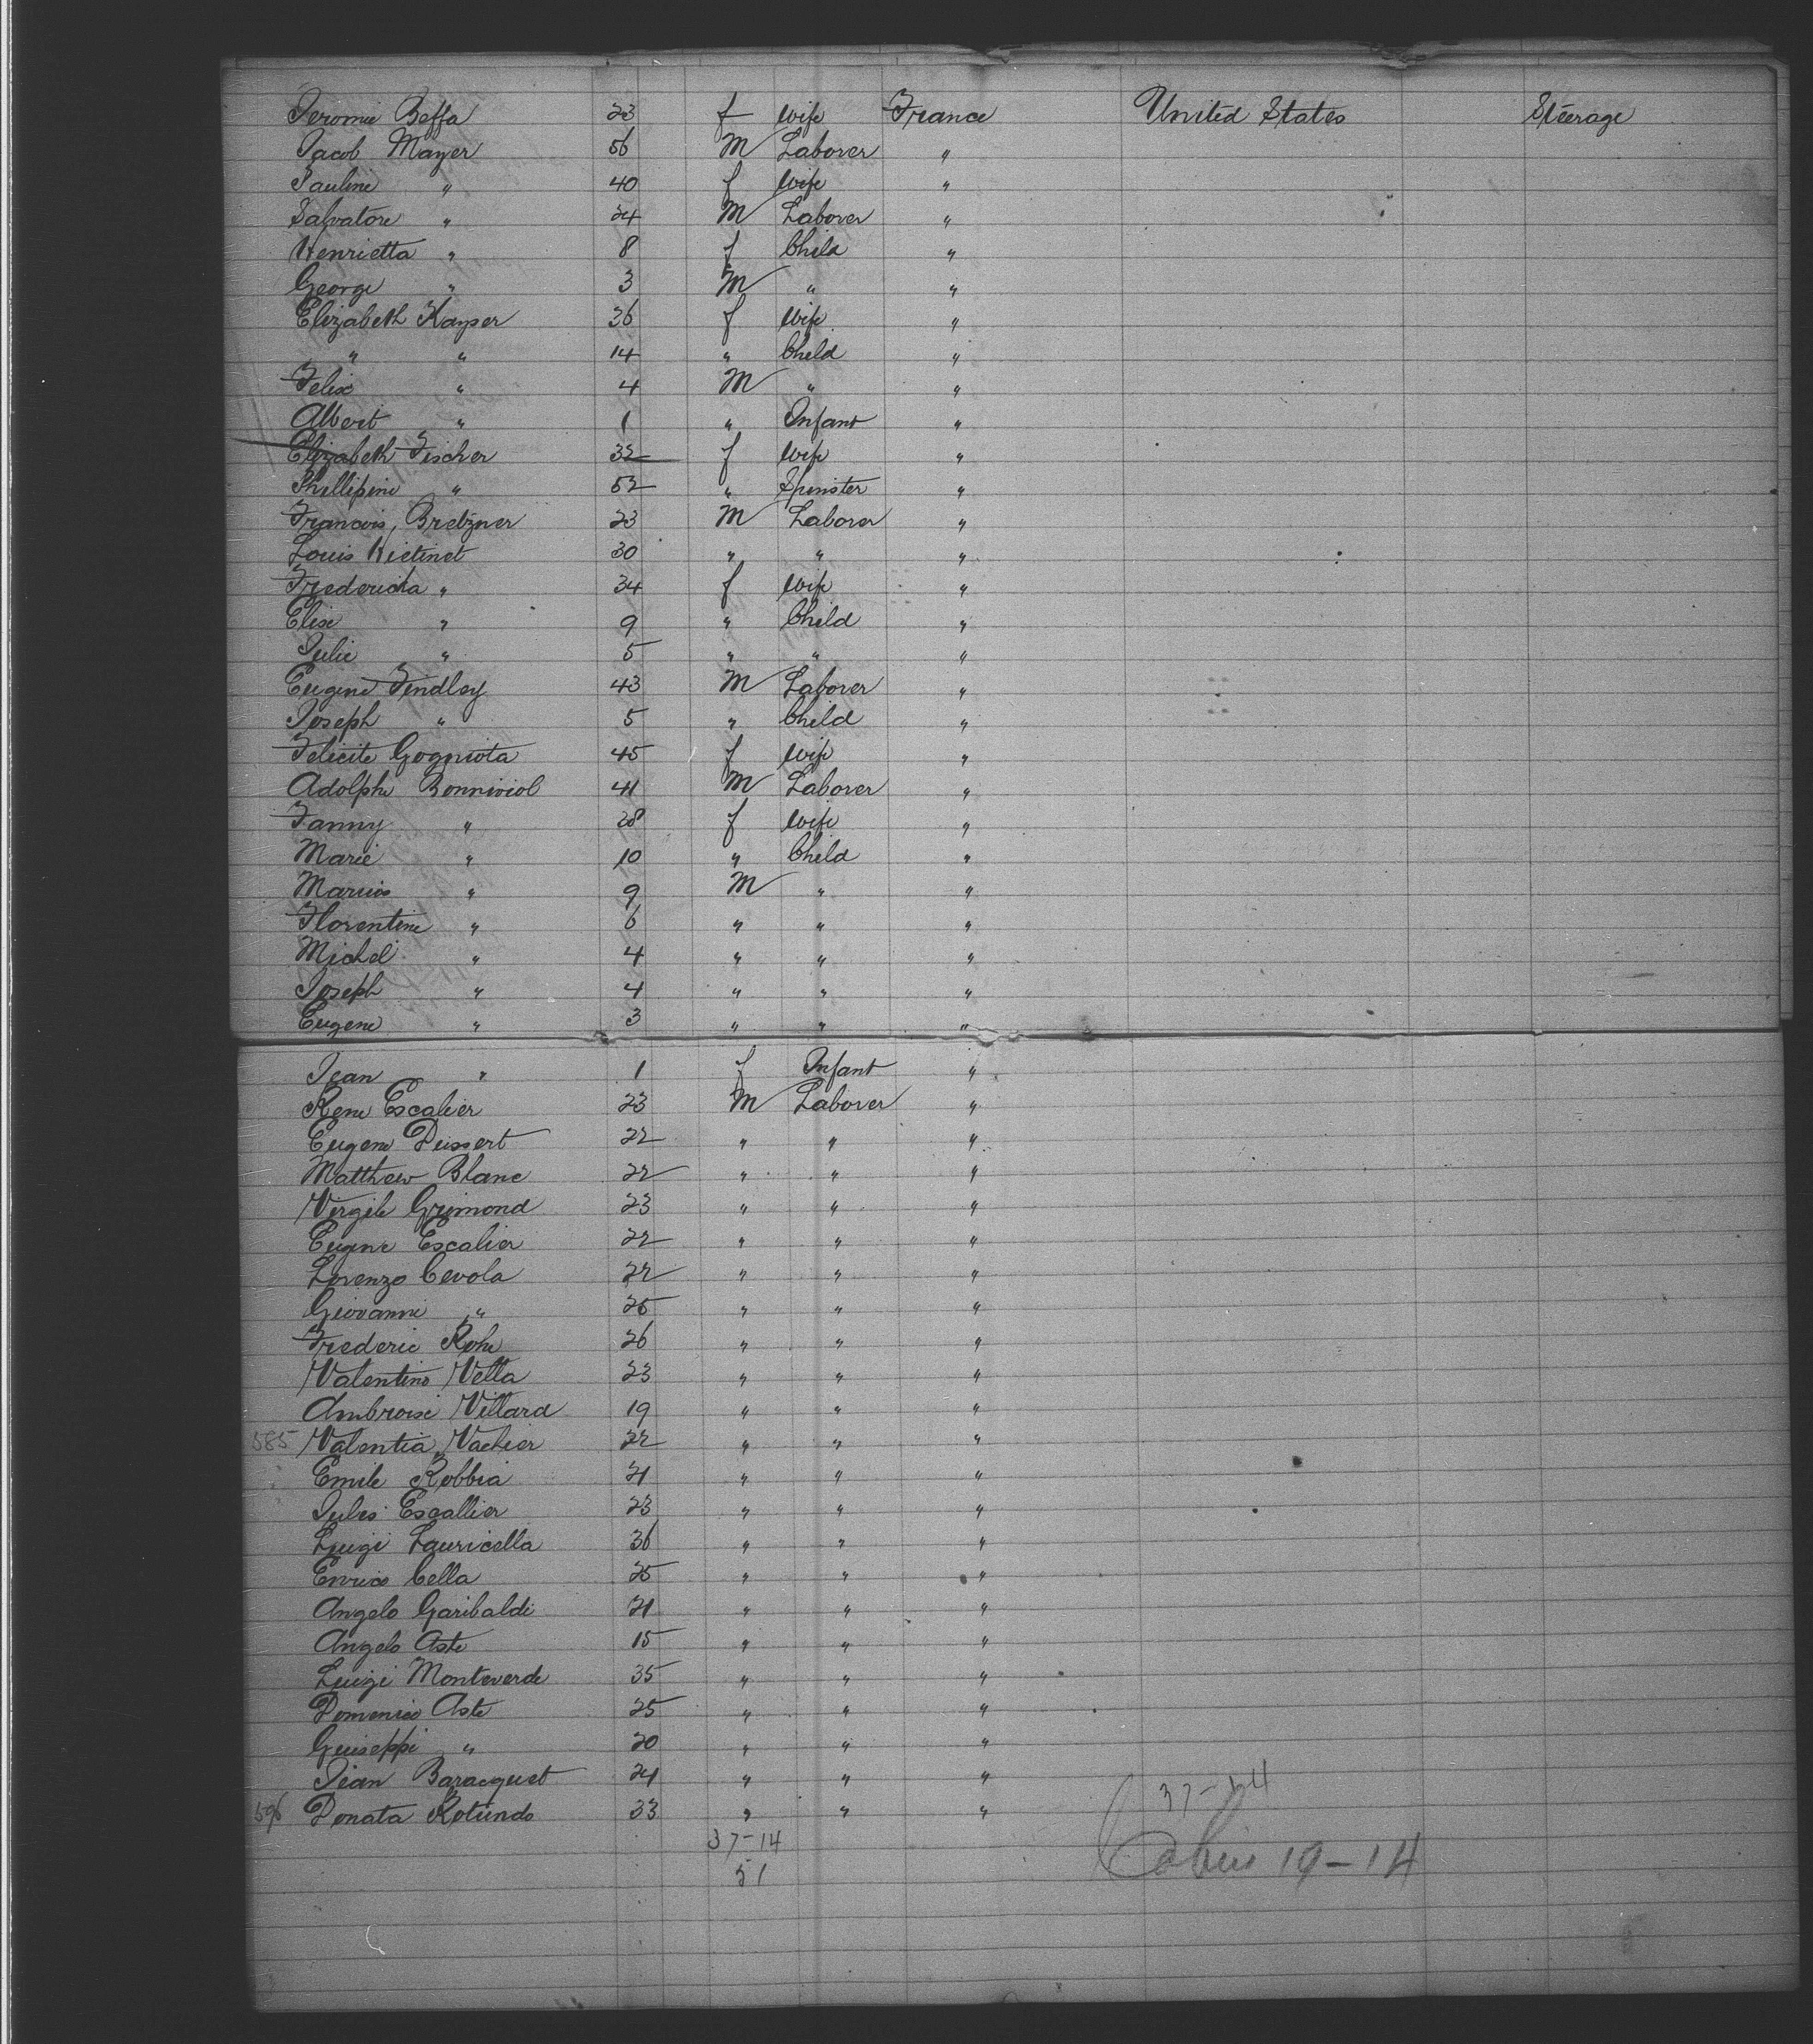 Jeromie Beffa 23 f wife France United States Steerage
Jacob Mayer 56 M Laborer "
Pauline " 40 f wife "
Salvatore " 24 M Laborer "
Henrietta " 8 f Child "
George " 3 M " "
Elizabeth Kayser 36 f wife "
" " 14 " Child "
Felix " 4 M " "
Albert " 1 " Infant "
Elizabeth Fischer 32 f wife "
Phillipine " 52 " Spinster "
Francois, Bretzner 23 M Laborer "
Louis 30 " " "
Fredericka " 34 f wife "
Elise " 9 " Child "
Julie " 5 " " "
Eugene Findley 43 M Laborer "
Joseph " 5 " Child "
Felicite Gogniota 45 f wife "
Adolphe Bonniviol 41 M Laborer "
Fanny " 28 f wife "
Marie " 10 " Child "
Marius " 9 M " "
Florentine " 6 " " "
Michel " 4 " " "
Joseph " 4 " " "
Eugene " 3 " " "
Jean " 1 f Infant "
Rene Escalier 23 M Laborer "
Eugene Dussert 22 " " "
Matthew Blanc 22 " " "
Virgile Grimond 23 " " "
Eugene Escalier 22 " " "
Lorenzo Cevola 22 " " "
Giovanni " 25 " " "
Frederic Rohe 26 " " "
Valentino Vella 23 " " "
Ambroise Villard 19 " " "
585 Valentia Vachier 22 " " "
Emile Robbia 21 " " "
Jules Escallier 23 " " "
Luigi Lauricella 36 " " "
Enrico Cella 25 " " "
Angelo Garibaldi 21 " " "
Angelo Aste 15 " " "
Luigi Monteverde 35 " " "
Domenico Aste 25 " " "
Guiseppi " 20 " " "
Jean Baracquet 24 " " "
596 Donata Rotundo 33 " " "
37-14 37-14
51 Cabin 19-14